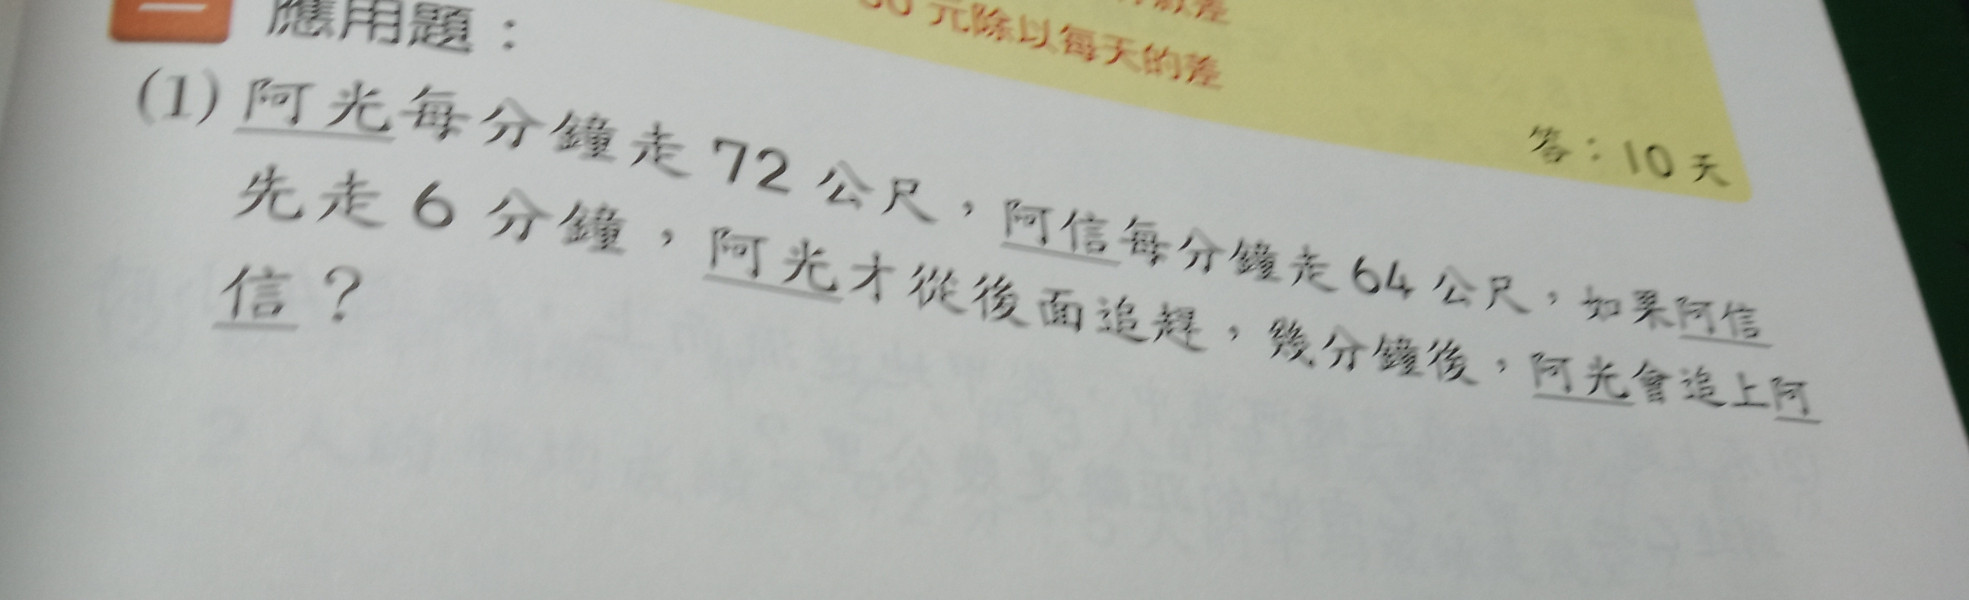 元除以每天的差
答：10天
一 應用題：
(1) 阿光每分鐘走 72 公尺，阿信每分鐘走 64 公尺，如果阿信
先走 6 分鐘，阿光才從後面追趕，幾分鐘後，阿光會追上阿
信？